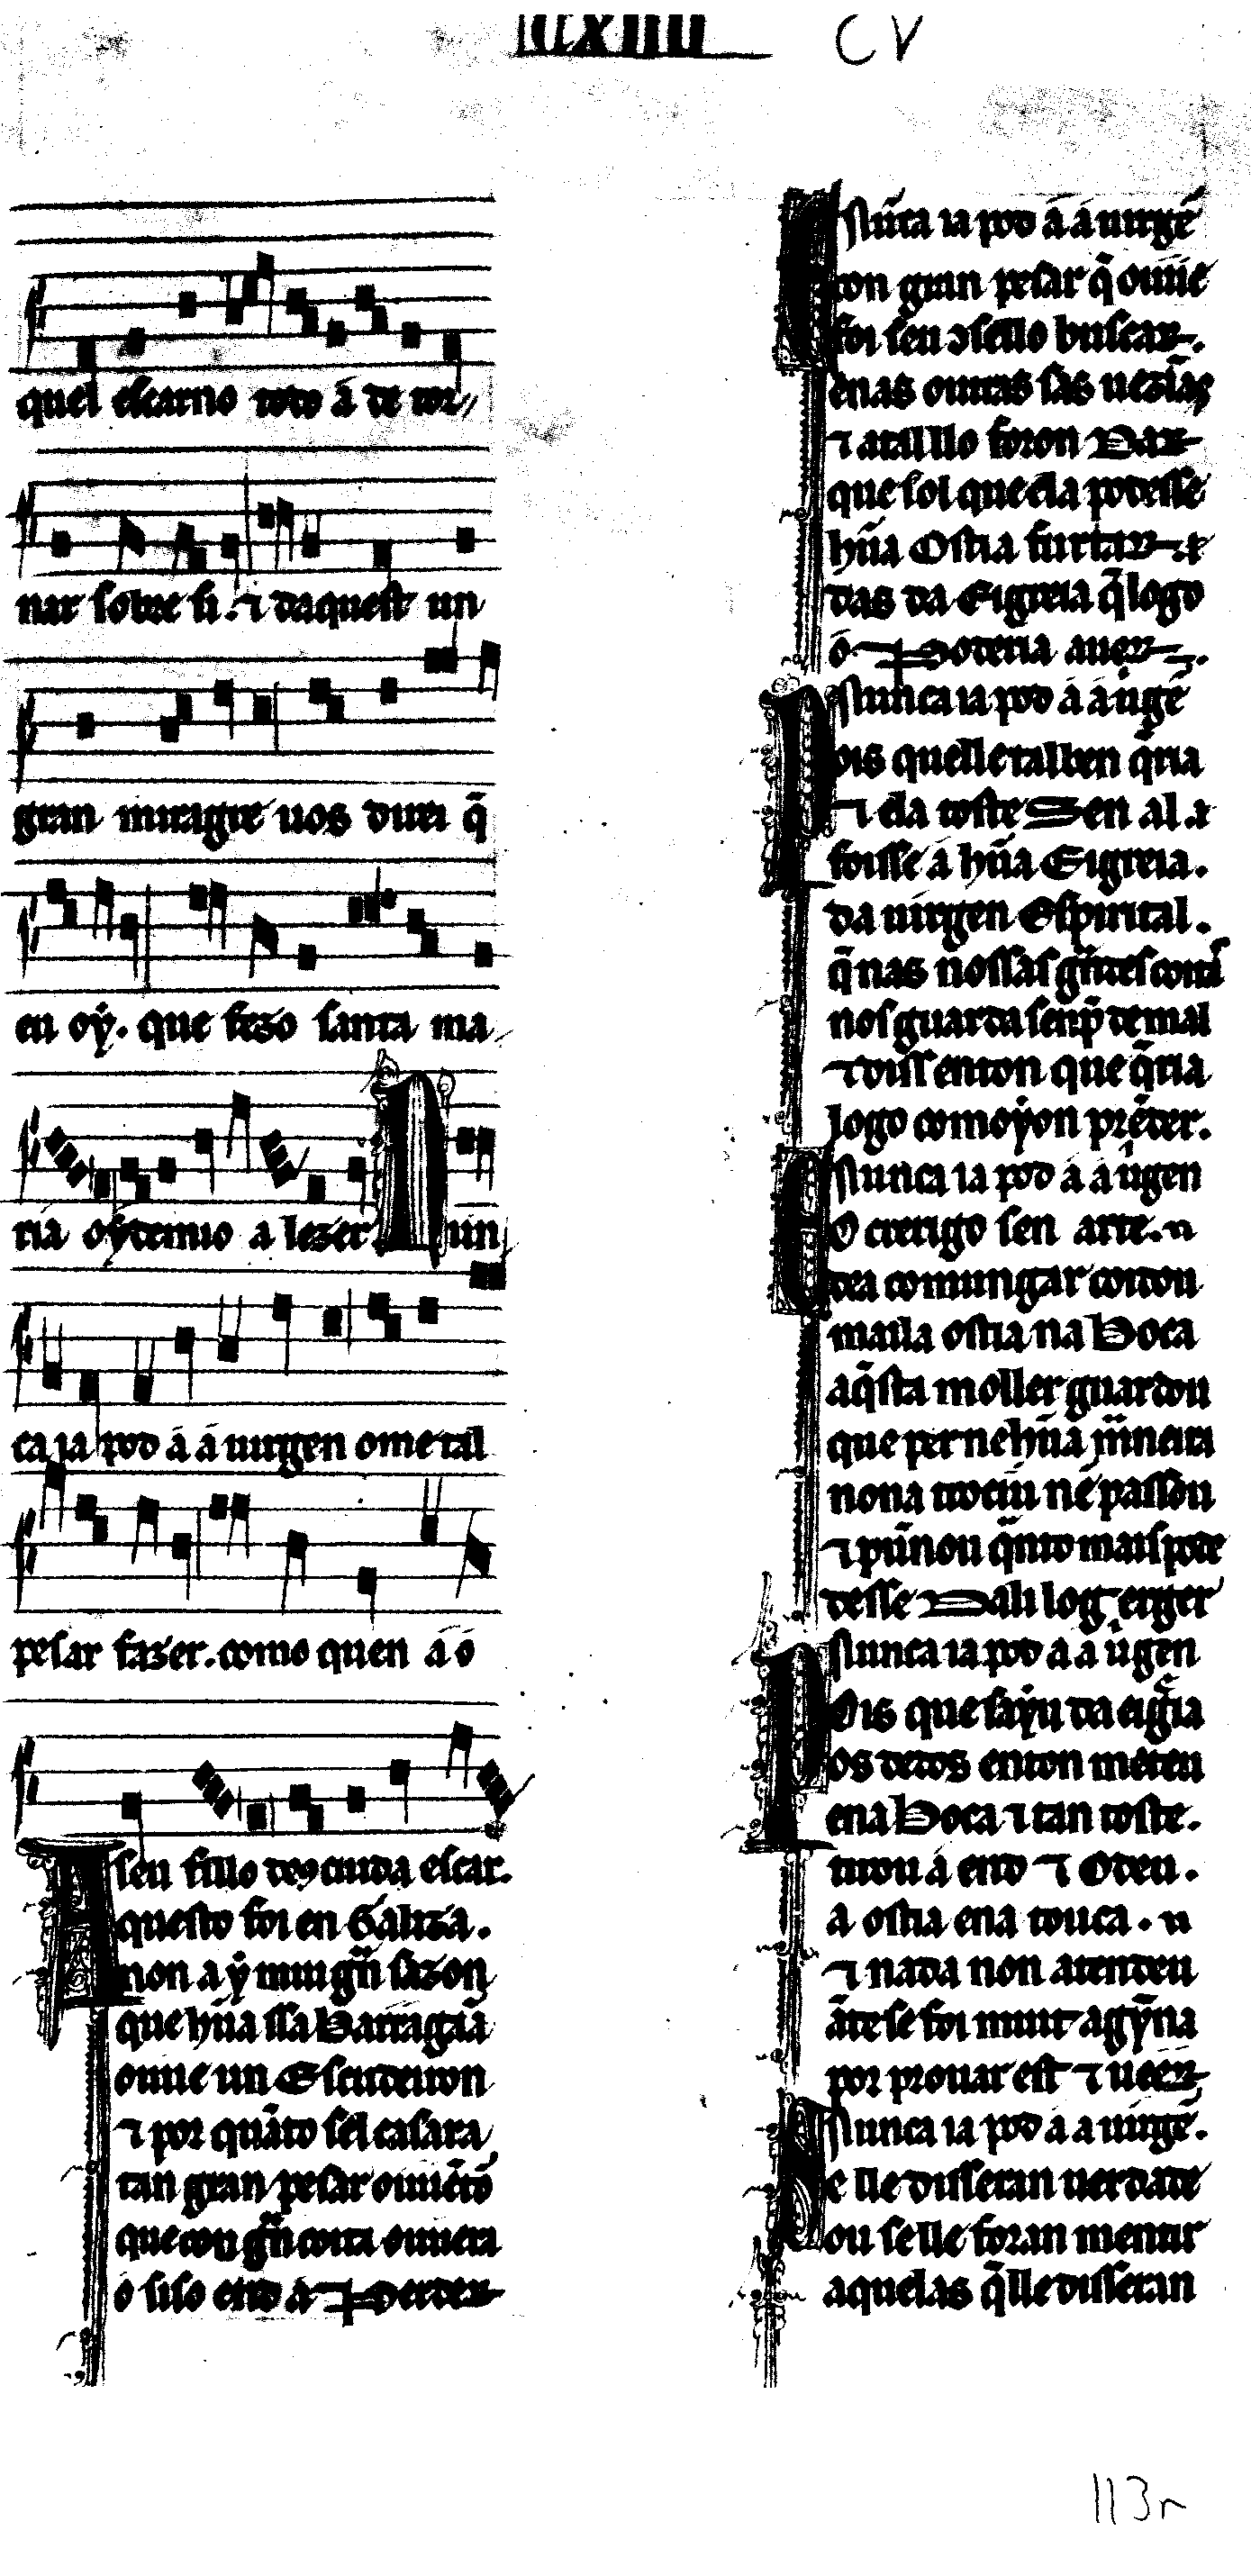 cxiiii CV
quel escarno todo á de tor,,
nar sobre si. ⁊ daquest un
gran miragre uos direi q̄
en oý. que fezo santa ma
ria oýdemio a lezer. Nun
ca ia pod á á uirgen ome tal
pesar fazer. como quen á o
seu fillo deꝯ cuida escar.
Aquesto foi en Galiza.
non a ý mui gn̄ sazon
que hũa ssa Barragãa
ouue un Escudeiron
⁊ por quãto ss el casara
tan gran pesar ouuẽdo
que con gn̄ coita ouuera
o siso end á Perder
Nũca ia pod á á uirgẽ
Con gran pesar q̄ ouuẽ
foi seu ɔsello buscar.
enas outras sas uezĩas
⁊ atal llo foron Dar
que sol que ela podesse
hũa Ostia furtar. ⁊
das da Eigreia q̄ logo
ó Poderia auer.
Nunca ia pod á á ùgẽ
Pois quelle tal ben q̄ria
⁊ ela toste Sen al. ⁊
foisse á hũa Eigreia.
da uirgen Espirital.
q̄ nas nossas gn̄des coitas
nos guarda senp̄ de mal
⁊ diss enton que q̄ria
logo comoýon prẽder.
Nunca ia pod á á ùgen
O crerigo sen arte. n
dea comungar coidou
maila ostia na Boca
aq̄sta moller guardou
que per nehũa mãneira
nona trociu nẽ passou
⁊ pũnou q̄nto mais pode
desse Dali log erger
Nunca ia pod a a ùgen
Pois que saýu da eigr̄ia
os dedos enton meteu
ena Boca ⁊ tan toste.
tirou á end ⁊ Odeu.
a ostia ena touca. n
⁊ nada non atendeu
ãte se foi muit agýna
por prouar est ⁊ ueer
Nunca ia pod á a uirgẽ.
Se lle disseran uerdade
ou se lle foran mentir
aquelas q̄ lle disseran
113r